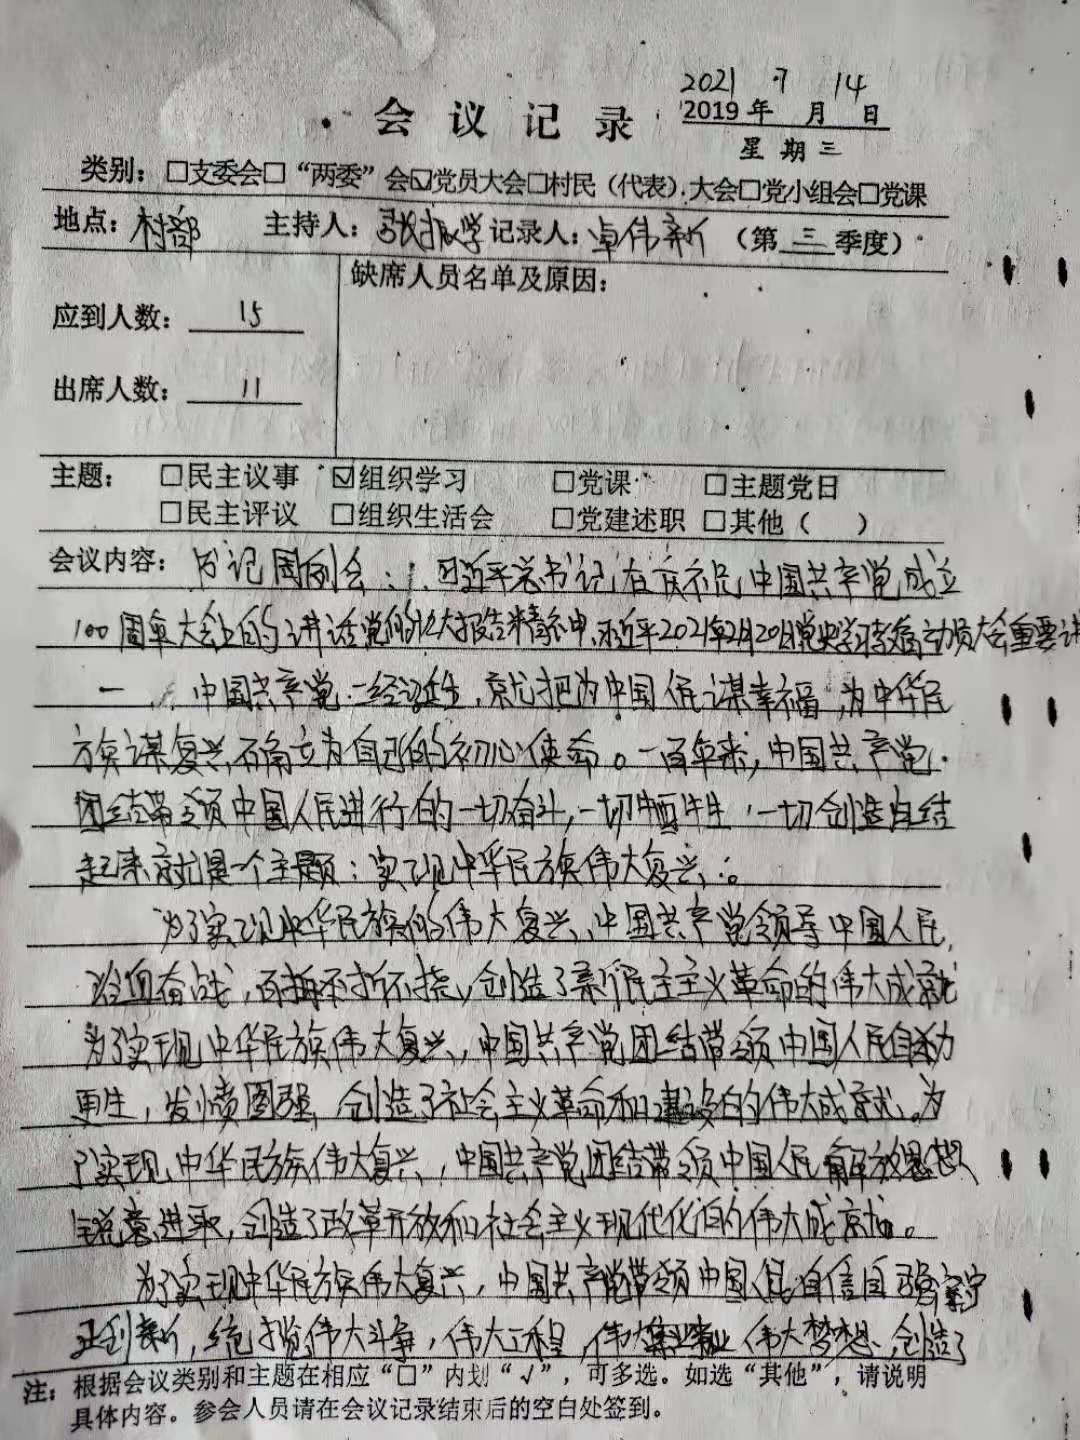 2021 7 14
会议记录 2019年 月 日
星期三
类别：□支委会□“两委”会☑党员大会□村民（代表）大会□党小组会□党课
地点：村部 主持人：张振学 记录人：卓伟新 （第三季度）
缺席人员名单及原因：
应到人数：15
出席人数：11
主题：□民主议事 ☑组织学习 □党课 □主题党日
□民主评议 □组织生活会 □党建述职 □其他（ ）
会议内容：书记周例会：1.习近平总书记在庆祝中国共产党成立
100周年大会上的讲话党的十九大报告精神 习近平2021年2月20日党史学习教育动员大会重要讲
一、中国共产党一经诞生，就把为中国人民谋幸福，为中华民
族谋复兴而确立为自己的初心使命。一百年来，中国共产党
团结带领中国人民进行的一切奋斗，一切牺牲，一切创造自结
起来就是一个主题：实现中华民族伟大复兴。
为了实现中华民族的伟大复兴，中国共产党领导中国人民，
浴血奋战，百折不挠，创造了新民主主义革命的伟大成就
为了实现中华民族伟大复兴，中国共产党团结带领中国人民自力
更生，发愤图强，创造了社会主义革命和建设的伟大成就。为
了实现中华民族伟大复兴，中国共产党团结带领中国人民解放思想
锐意进取，创造了改革开放和社会主义现代化的伟大成就。
为了实现中华民族伟大复兴，中国共产党带领中国人民自信自强守
正创新，统揽伟大斗争，伟大工程，伟大事业伟大梦想，创造了
注：根据会议类别和主题在相应“□”内划“√”，可多选。如选“其他”，请说明
具体内容。参会人员请在会议记录结束后的空白处签到。